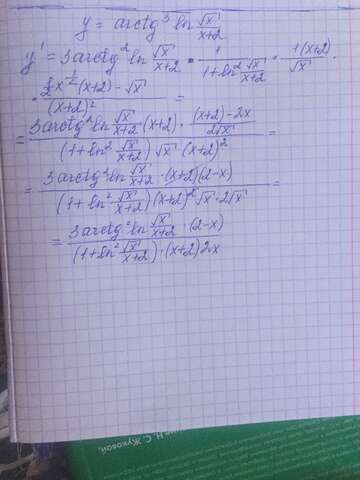 y = arctg³ ln √x / x+2
y' = 3 arctg² ln √x / x+2 · 1 / 1+ln² √x / x+2 · 1(x+2) / √x ·
· ½ x^-½ (x+2) - √x / (x+2)² =
= 3 arctg² ln √x / x+2 (x+2) · (x+2) - 2x / 2√x / (1+ln² √x / x+2) √x · (x+2)² =
= 3 arctg² ln √x / x+2 · (x+2)(2-x) / (1+ln² √x / x+2)(x+2)² √x · 2√x =
= 3 arctg² ln √x / x+2 · (2-x) / (1+ln² √x / x+2) · (x+2) 2x
Н. С. Жуковой.